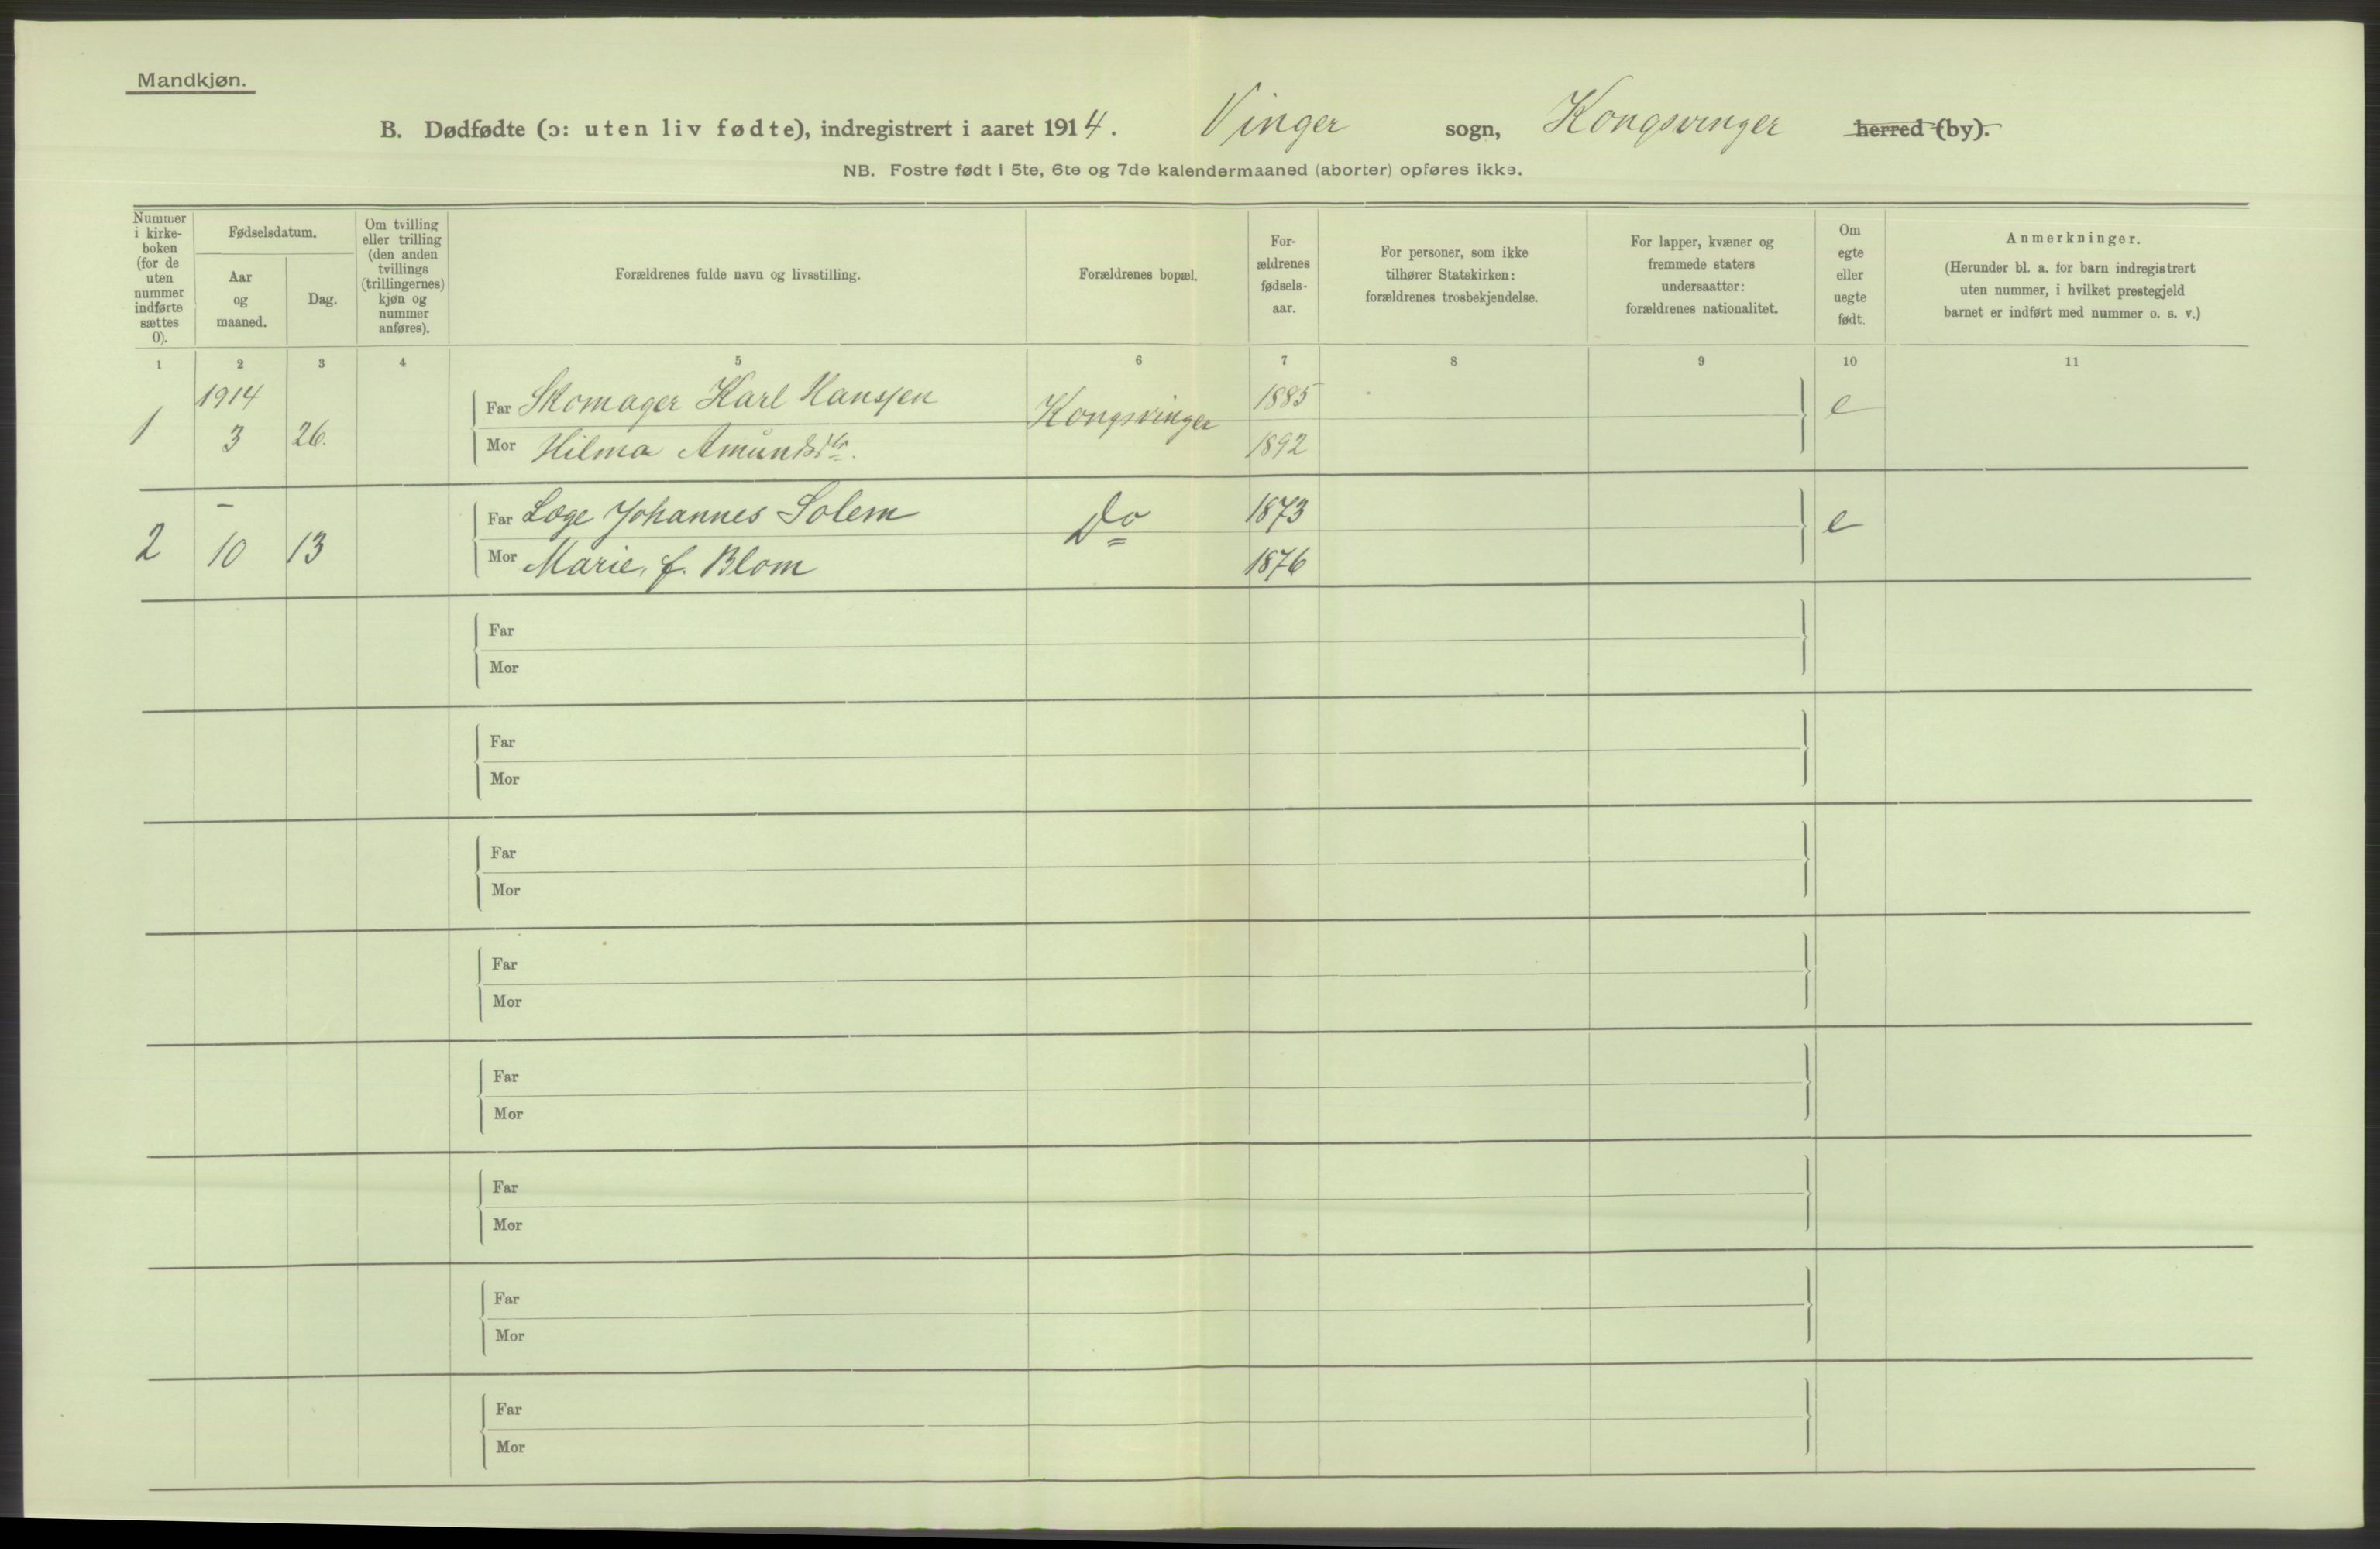 Mandkjøn.
B. Dødfødte (ɔ: uten liv fødte), indregistrert i aaret 1914. Vinger sogn, Kongsvinger herred (by).
NB. Fostre født i 5te, 6te og 7de kalendermaaned (aborter) opføres ikke.
Nummer
i kirke-
boken
(for de
uten
nummer
indførte
sættes
0).
Fødselsdatum.
Aar
og
maaned.
Dag.
Om tvilling
eller trilling
(den anden
tvillings
(trillingernes)
kjøn og
nummer
anføres).
Forældrenes fulde navn og livsstilling.
Forældrenes bopæl.
For-
ældrenes
fødsels-
aar.
For personer, som ikke
tilhører Statskirken:
forældrenes trosbekjendelse.
For lapper, kvæner og
fremmede staters
undersaatter:
forældrenes nationalitet.
Om
egte
eller
uegte
født.
Anmerkninger.
(Herunder bl. a. for barn indregistrert
uten nummer, i hvilket prestegjeld
barnet er indført med nummer o. s. v.)
1 2 3 4 5 6 7 8 9 10 11
1914
Far Skomager Karl Hanssen Kongsvinger 1885 e
1 3 26. Mor Hilma Amunds 1892
–
Far Læge Johannes Solem Do 1873 e
2 10 13 Mor Marie, f. Blom 1876
Far
Mor
Far
Mor
Far
Mor
Far
Mor
Far
Mor
Far
Mor
Far
Mor
Far
Mor